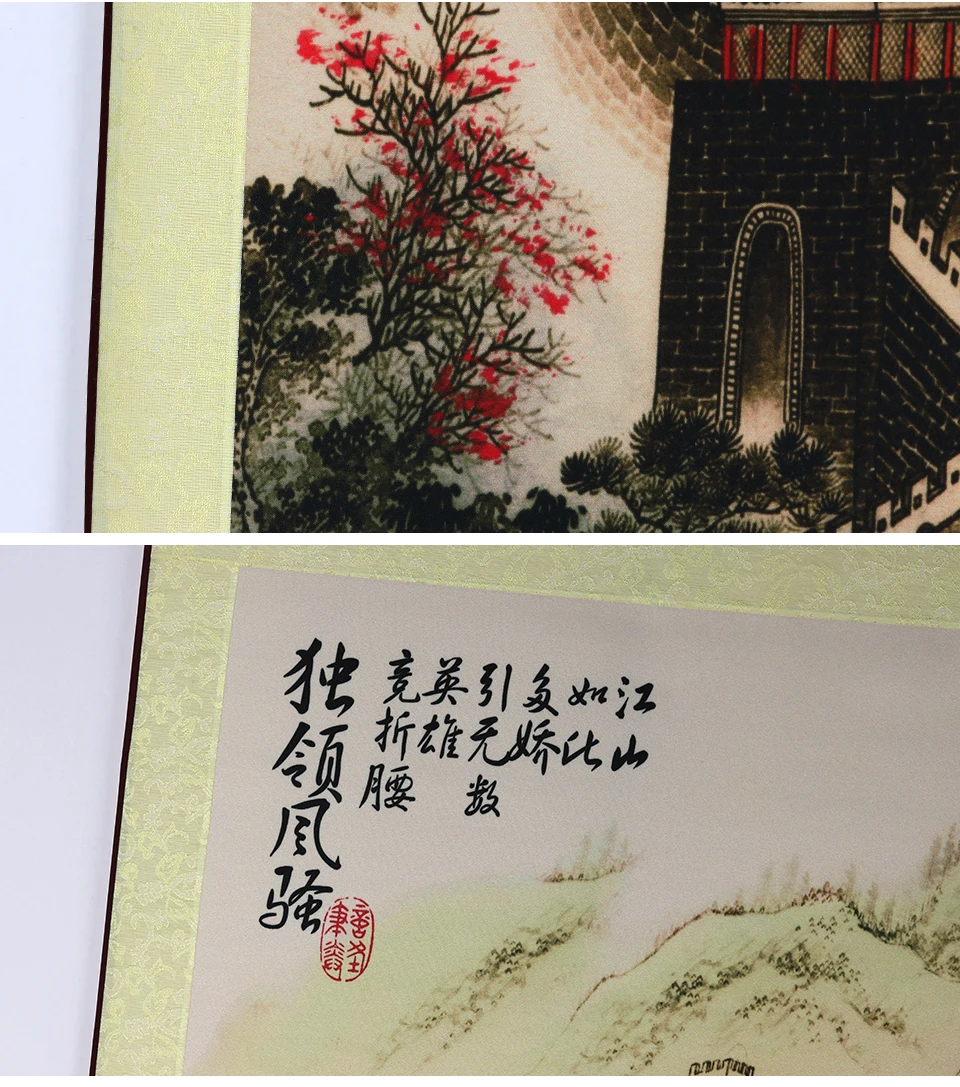 江山
如此
多娇
引无数
英雄
竞折腰
独领风骚